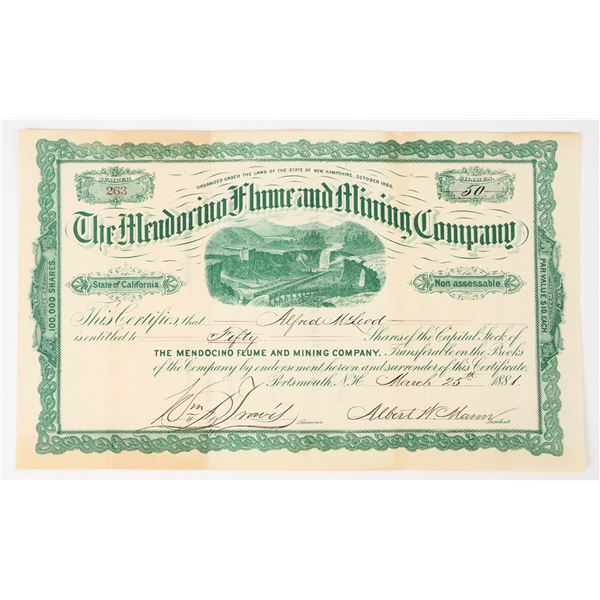 ORGANIZED UNDER THE LAWS OF THE STATE OF NEW HAMPSHIRE, OCTOBER 1880.
NUMBER
263
SHARES
50
The Mendocino Flume and Mining Company
State of California
Non assessable
100,000 SHARES.
PAR VALUE $10, EACH
This Certifies, that Alfred McLeod
is entitled to Fifty Shares of the Capital Stock of
THE MENDOCINO FLUME AND MINING COMPANY. Transferable on the Books
of the Company by endorsement hereon and surrender of this Certificate.
Portsmouth, N.H. March 25th 1881.
Wm Travis Treasurer
Albert W. Mann President